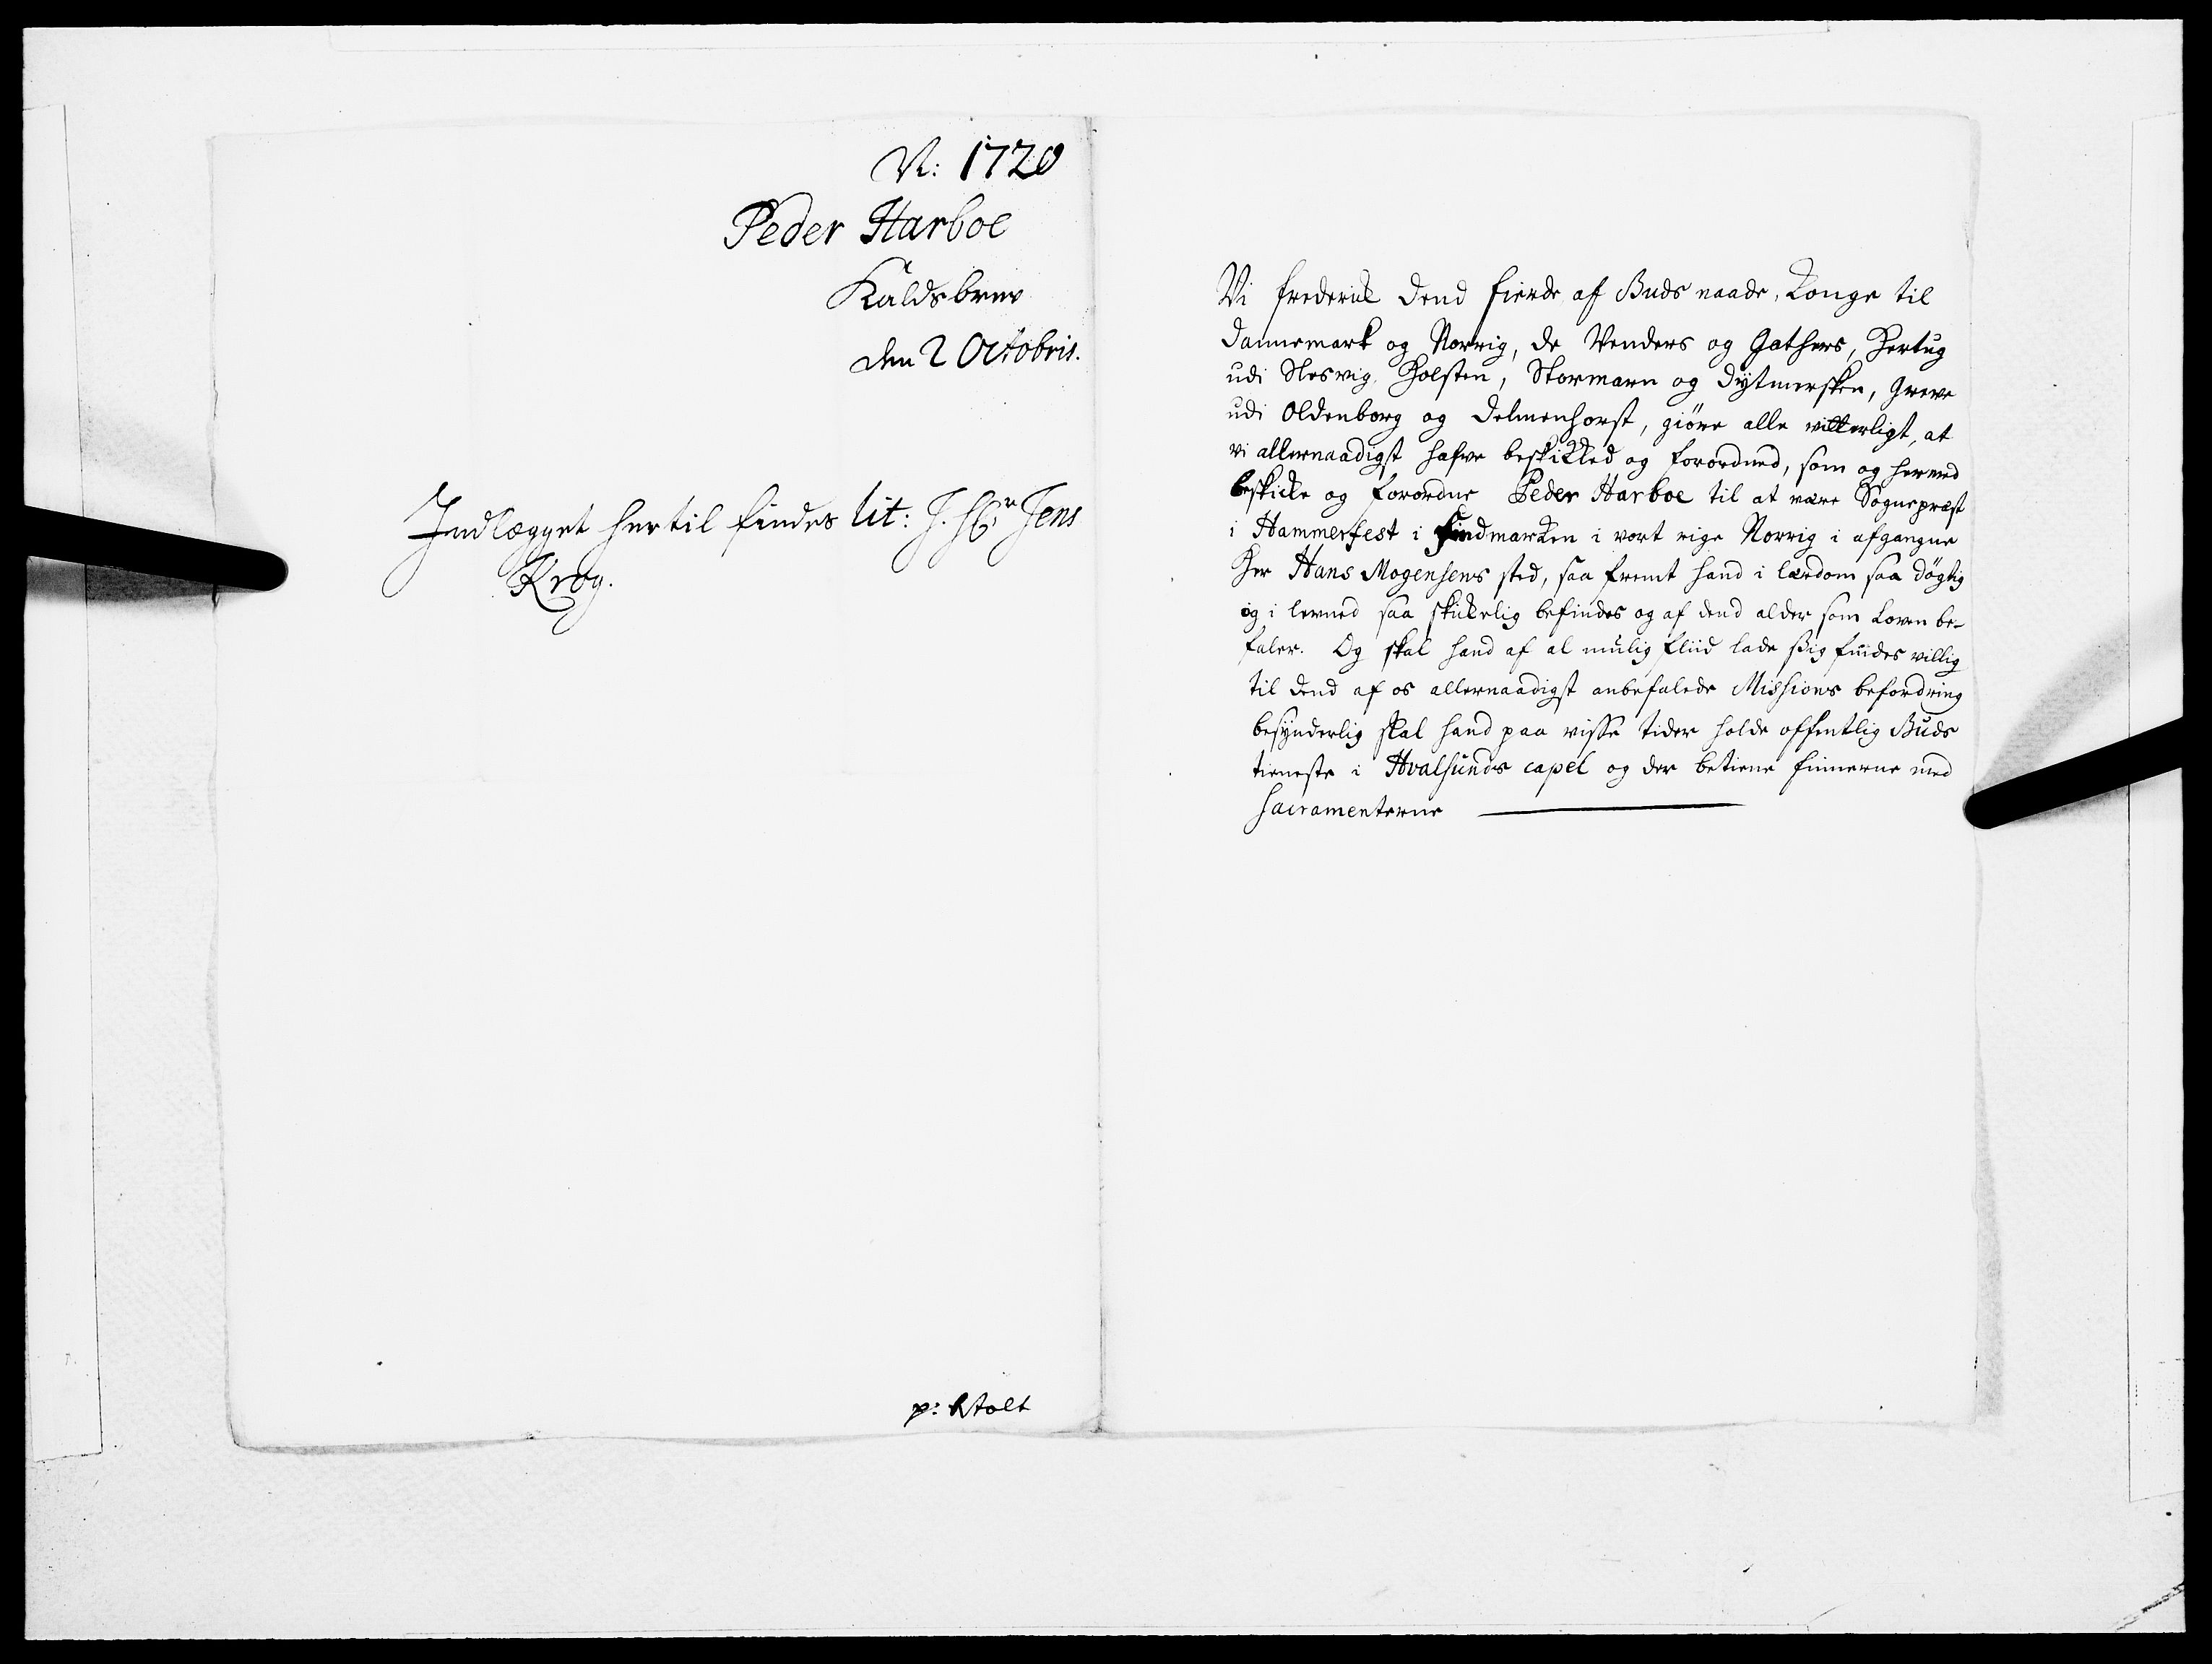 N: 1720
Peder Harboe
Kaldsbrev
den 2 Octobris.
Indlægget hertil findes lit: J. Hr Jens
Krog.
p: Stolt
Vi frederik dend fierde af Guds naade, Konge til
Dannemark og Norrig, de Venders og Gothers, Hertug
udi Slesvig Holsten, Stormarn og Dytmersken, Greve
udi Oldenborg og Delmenhorst, giöre alle vitterligt, at
vi allernaadigst hafve beskikked og forordned, som og hermed
beskicke og forordne Peder Harboe til at være Sognepræst
i Hammerfest i Findmarken i vort rige Norrig i afgangne
Her Hans Mogensens sted, saa fremt hand i lærdom saa dögtig
og i levned saa skickelig befindes og af dend alder som Loven be-
faler. Og skal hand af al mulig fliid lade sig findes villig
til dend af os allernaadigst anbefalede Missions befordring
besynderlig skal hand paa visse tider holde offentlig Guds
tieneste i Hvalsunds capel og der betiene finnerne med
Sacramenterne